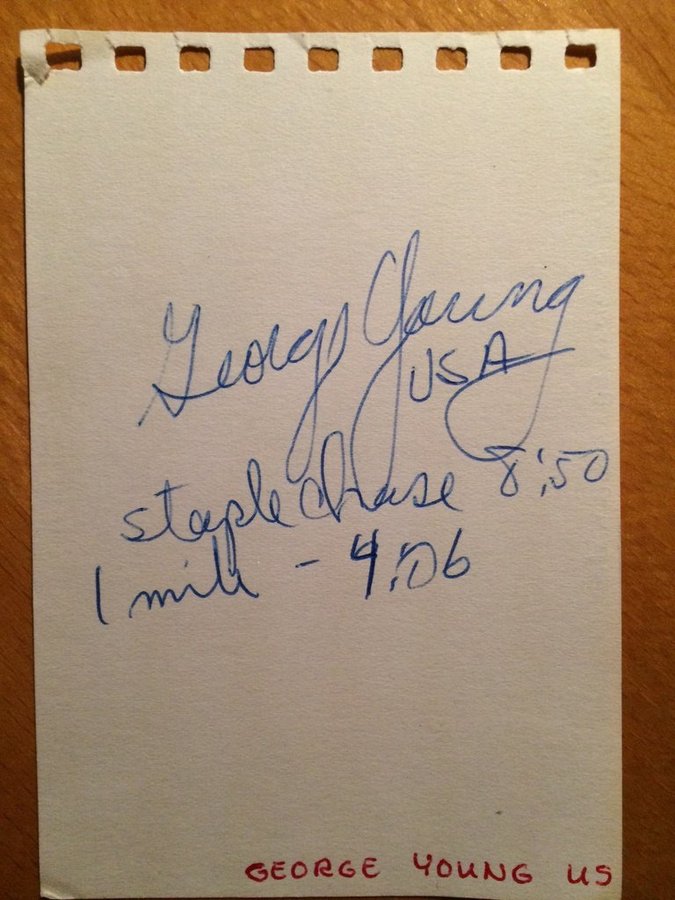 George Young
USA
staple chase 8:50
1 mile - 4:06
GEORGE YOUNG US